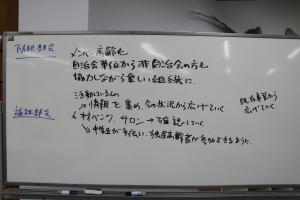 防犯部会
メンバー高齢化
自治会単位から非自治会の方も
協力しながら楽しい組織に
活動している人の
→情報を集め、今の状況から広げていく
既存事業から
広げていく。
福祉部会
人材バンク、サロン→確認していく
→中学生が手伝い、独居高齢者が参加できるように